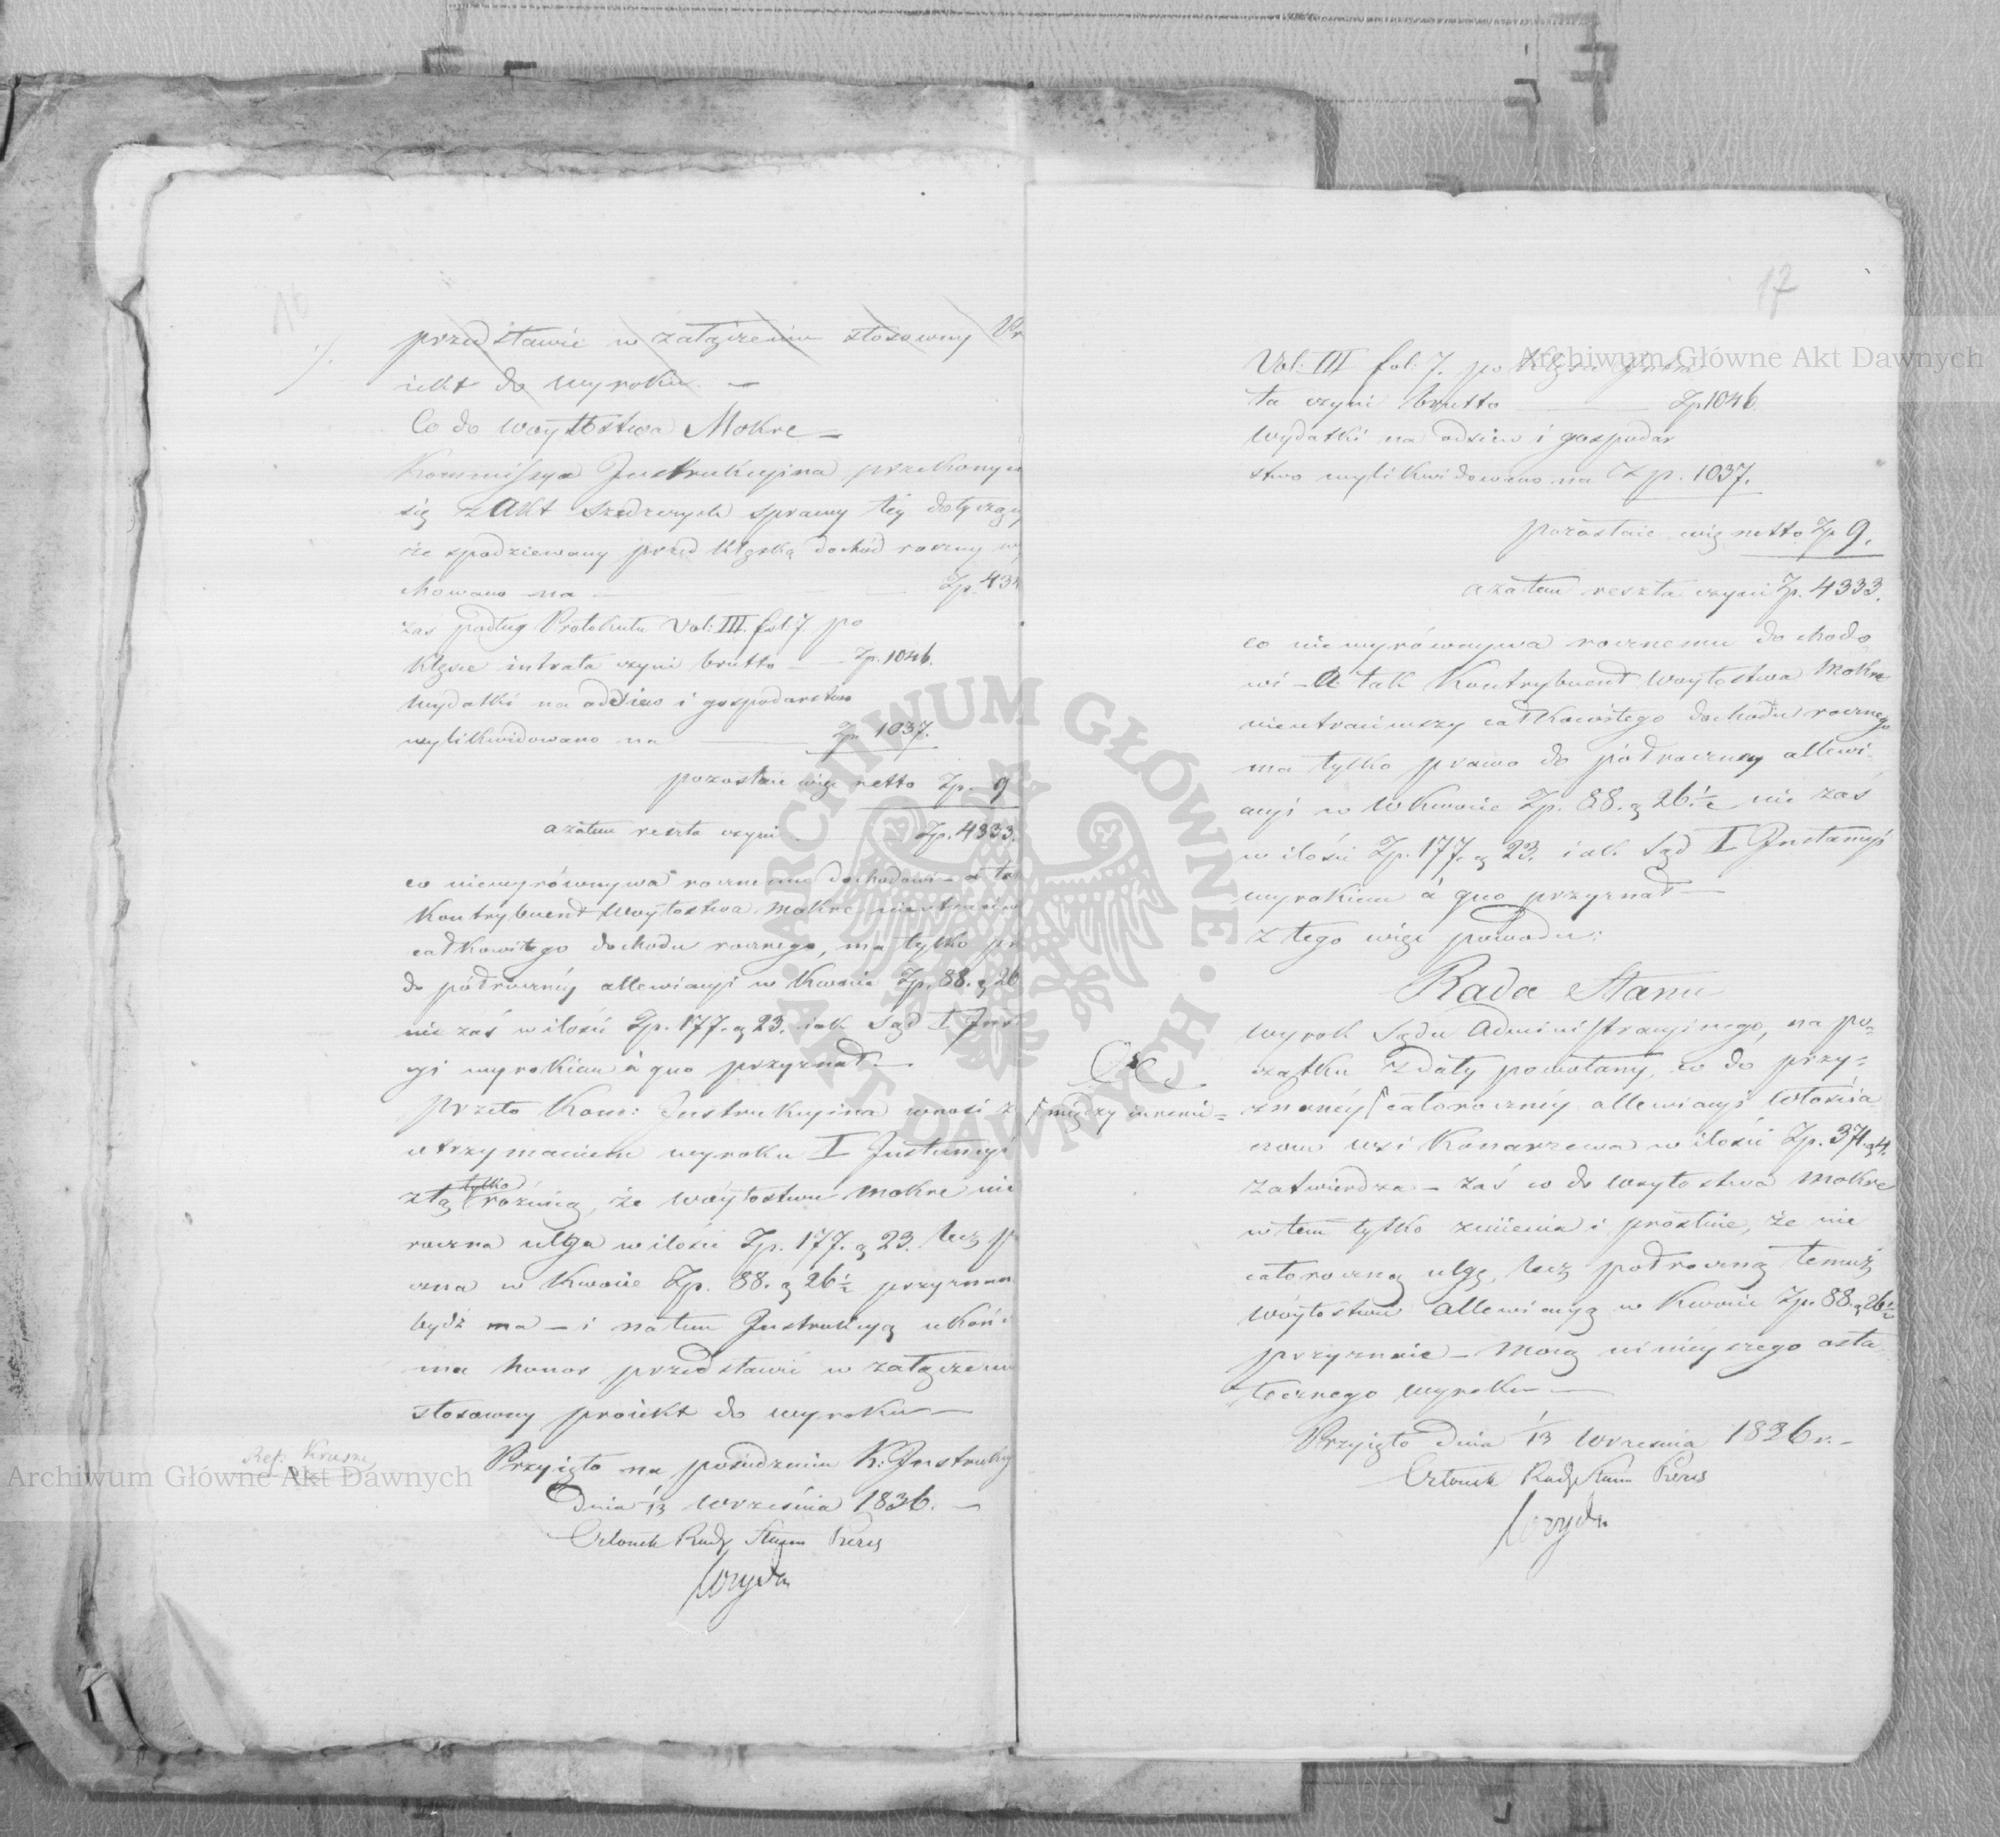 16
przedstawić w załączeniu stosowny Pr
iekt do wyroku. —
Co do Woytostwa Mokre —
Kommissya Instrukcyina przekonyw
się z Akt Szedzczych sprawy téy dotycząc
że spodziewany przed klęską dochód roczny
chowano na — Zp. 434
zas podług Protokułu Vol: III. fol: 7. po
Klęsce intrata czyni brutto — Zp. 1046.
Wydatki na odsiew i gospodarstwo
wylikwidowano na — Zp. 1037.
pozostaie więc netto Zp. 9
azatem reszta czyni — Zp. 4333.
co niewyrównywa rocznemu dochodowi — a tak
Kontrybuent Woytostwa Mokre nieutraciw
całkowitego dochodu rocznego, ma tylko pr
do półrocznéy allewiacyi w kwocie Zp. 88. g 26
nie zaś w ilości Zp. 177. g 23. iak Sąd I Inst
cyi wyrokiem à quo przyznał. —
Przeto Kom: Instrukcyina wnosi z
utrzymaniem wyroku I Instancyi
z tą tylko różnicą, że Woytostwu Mokre nie
roczna ulga w ilości Zp. 177. g 23. lecz p
czna w kwocie Zp. 88. g 26½ przyznan
bydź ma — i na tem Instrukcyą ukońc
ma honor przedstawić w załączeniu
stosowny proiekt do wyroku —
Ref: Krusze
Przyięto na posiedzeniu K: Instrukcy
Dnia 1/13 Września 1836. —
Członek Rady Stanu Prezes
Archiwum Główne Akt Dawnych
17
Archiwum Główne Akt Dawnych
Vol: III fol: 7. po Klęsce Intra
ta czyni brutto — Zp 1046
Wydatki na odsiew i gospodar
stwo wylikwidowano na Zp. 1037.
pozostaie więc netto Zp 9.
azatem reszta czyni Zp. 4333.
co niewyrównywa rocznemu dochodo
wi — A tak Kontrybuent Woytostwa Mokre
nieutraciwszy całkowitego dochodu rocznego
ma tylko prawo do półroczney allewi
acyi w kwocie Zp. 88. g 26½ nie zas
w ilości Zp. 177. g 23. iak Sąd I Instancyi
wyrokiem à quo przyznał —
Z tego więc powodu:
Rada Stanu
Wyrok Sądu Administracyinego, na po=
czątku z daty powołany, co do przy=
między innemi=
znanéy całorocznéy allewiacyi Włościa
nom wsi Konarzewa w ilości Zp. 374. g 4.
zatwierdza — zaś co do Woytostwa Mokre
w tem tylko zmienia i prostuie, że nie
całoroczną ulgę, lecz półroczną temuż
Woytostwu allewiacyą w kwocie Zp. 88. g 26½
przyznaie — Mocą ninieyszego osta
tecznego wyroku —
Przyięto Dnia 1/13 Września 1836 r. —
Członek Rady Stanu Prezes
ARCHIWUM GŁÓWNE AKT DAWNYCH